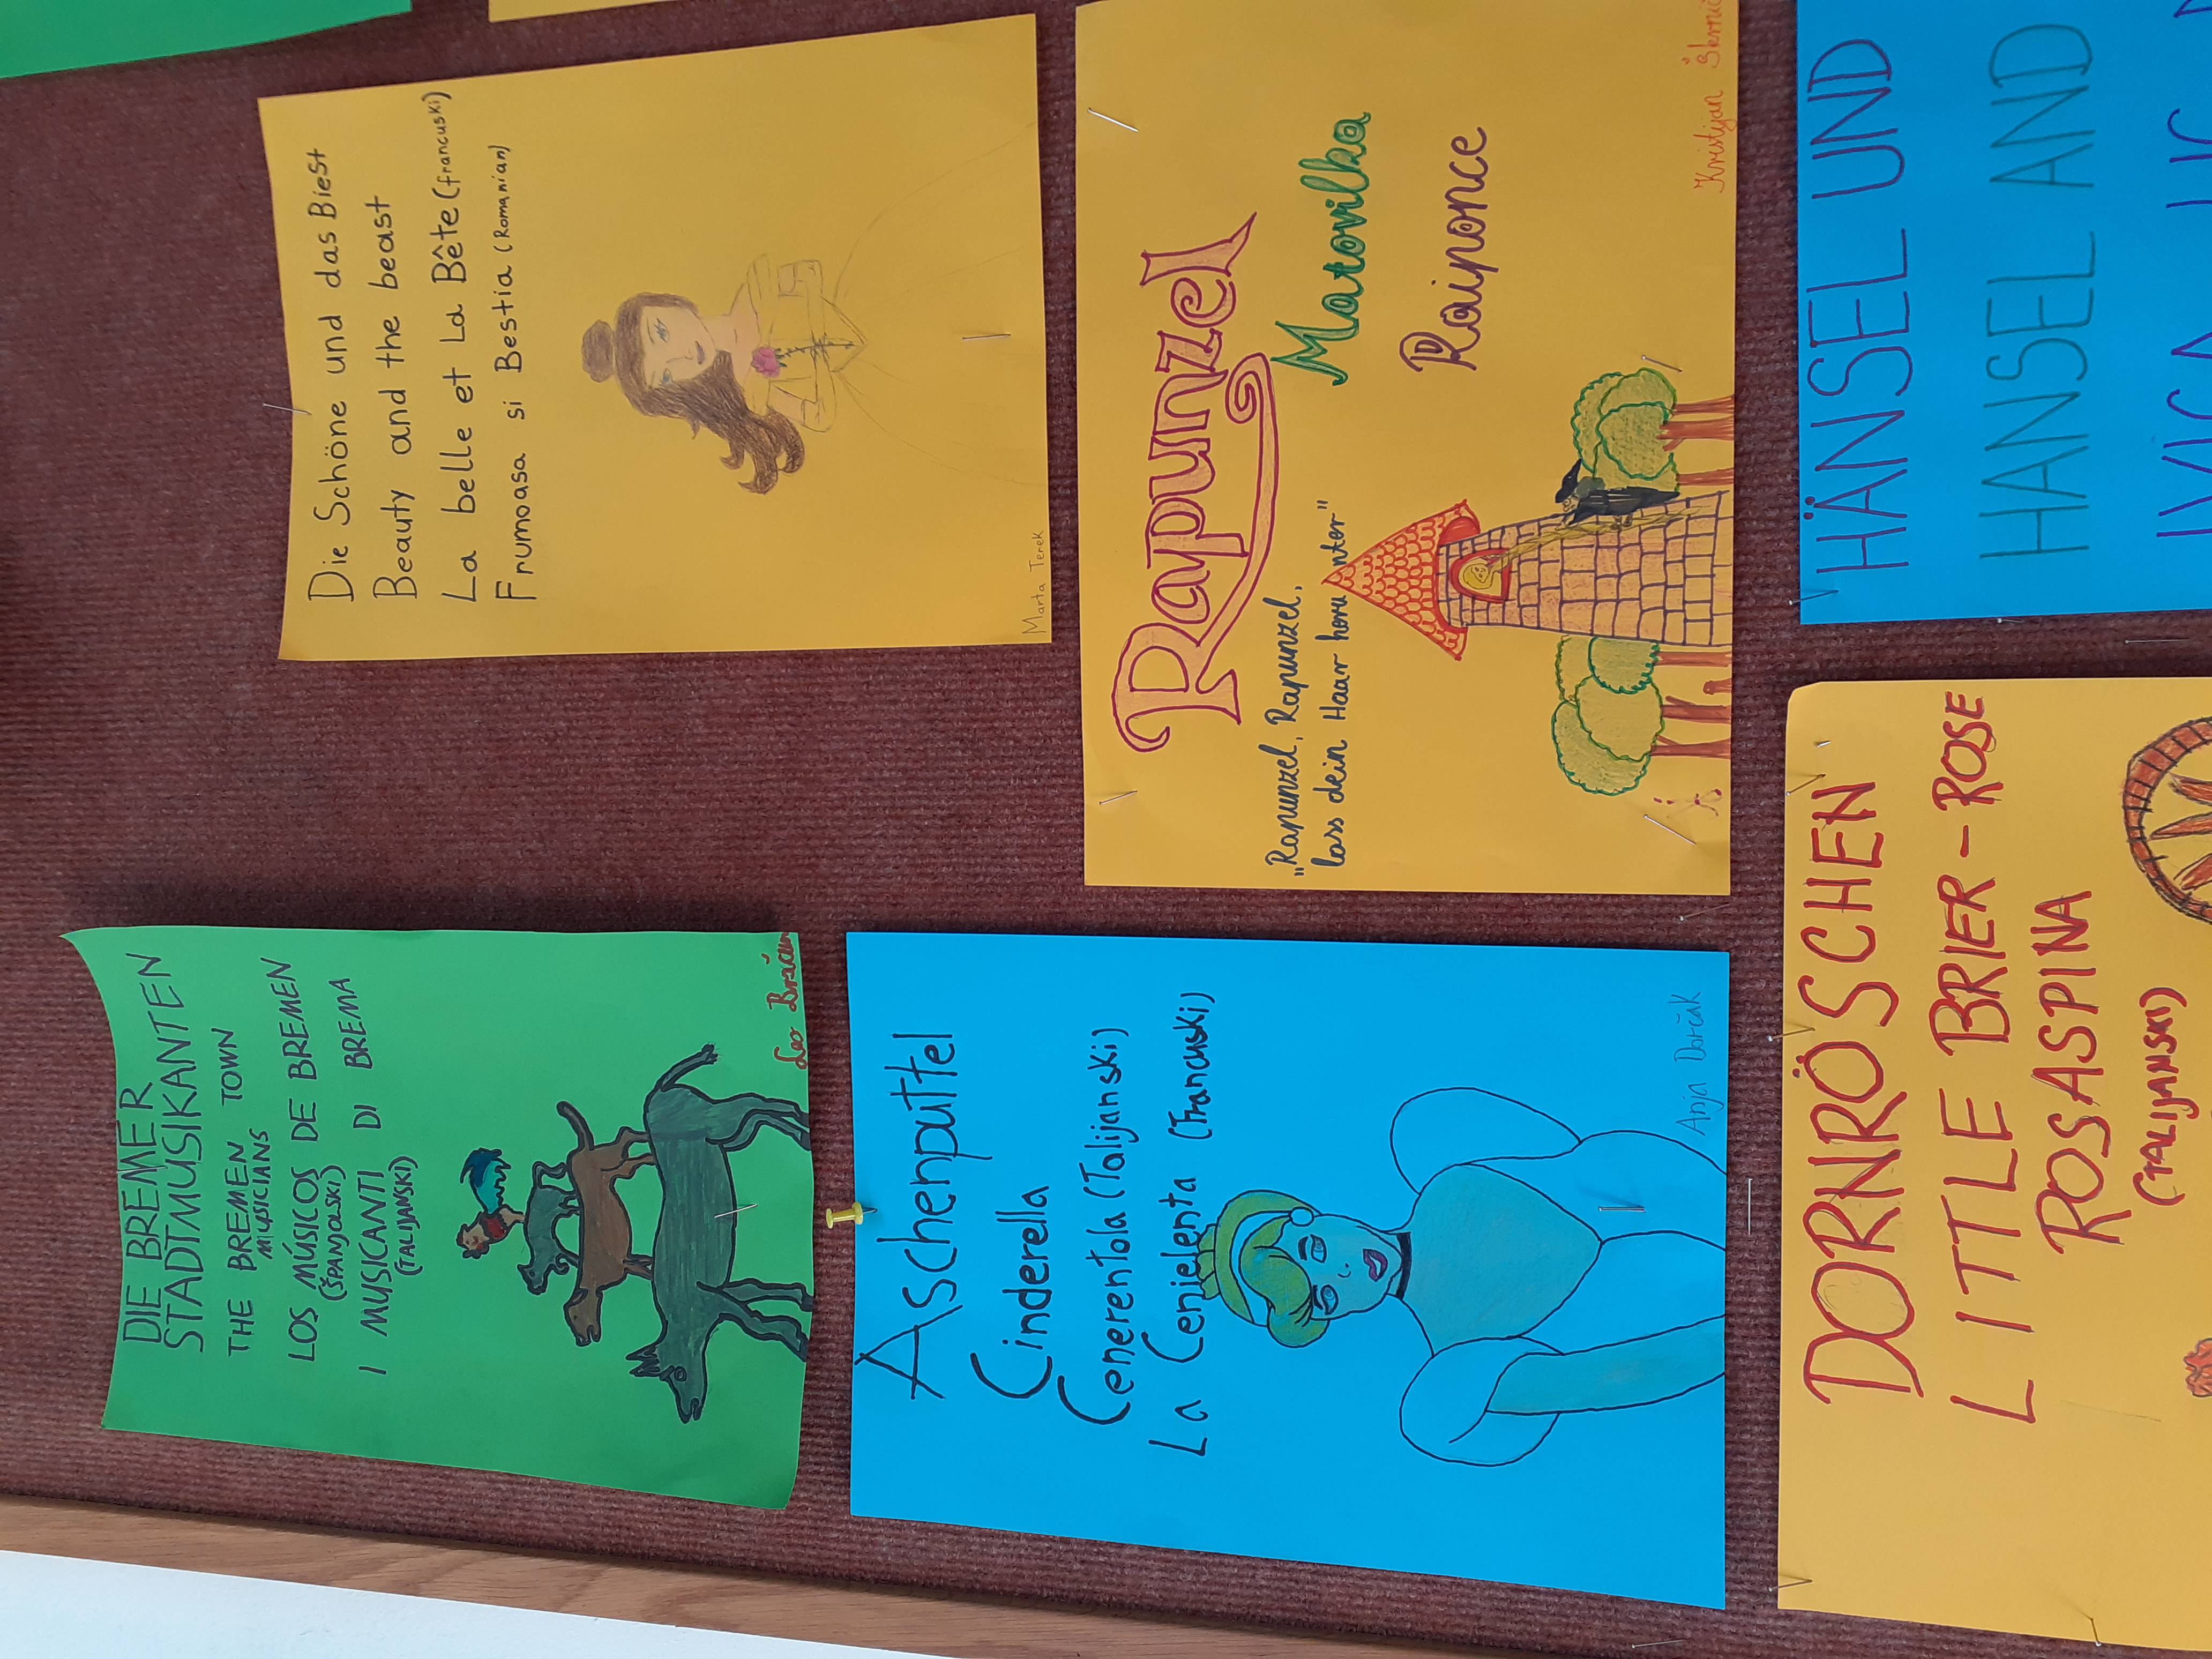 DIE BREMER
STADTMUSIKANTEN
THE BREMEN TOWN
MUSICIANS
LOS MÚSICOS DE BREMEN
(ŠPANJOLSKI)
I MUSICANTI DI BREMA
(TALIJANSKI)
Die Schöne und das Biest
Beauty and the beast
La belle et La Bête (francuski)
Frumoasa si Bestia (Romanian)
Marta Terek
Aschenputtel
Cinderella
Cenerentola (Talijanski)
La Cenielenta (Francuski)
Anja Dorčak
Rapunzel
"Rapunzel, Rapunzel,
lass dein Haar herunter"
Matovilka
Raiponce
Kristijan
DORNRÖSCHEN
LITTLE BRIER-ROSE
ROSASPINA
(TALIJANSKI)
HÄNSEL UND
HANSEL AND